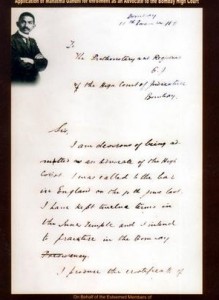 Application of Mahatma Gandhi for enrolment as an Advocate to the Bombay High Court
Bombay
To,
The Prothonotary and Registrar
of the High Court of Judicature
Bombay.
Sir,
I am desirous of being ad-
mitted as an advocate of the High
Court. I was called to the bar
in England on the 10th June last.
I have kept twelve terms in
the Inner Temple and I intend
to practise in the Bombay
Presidency.
I produce the certificate of
On Behalf of the Esteemed Members of